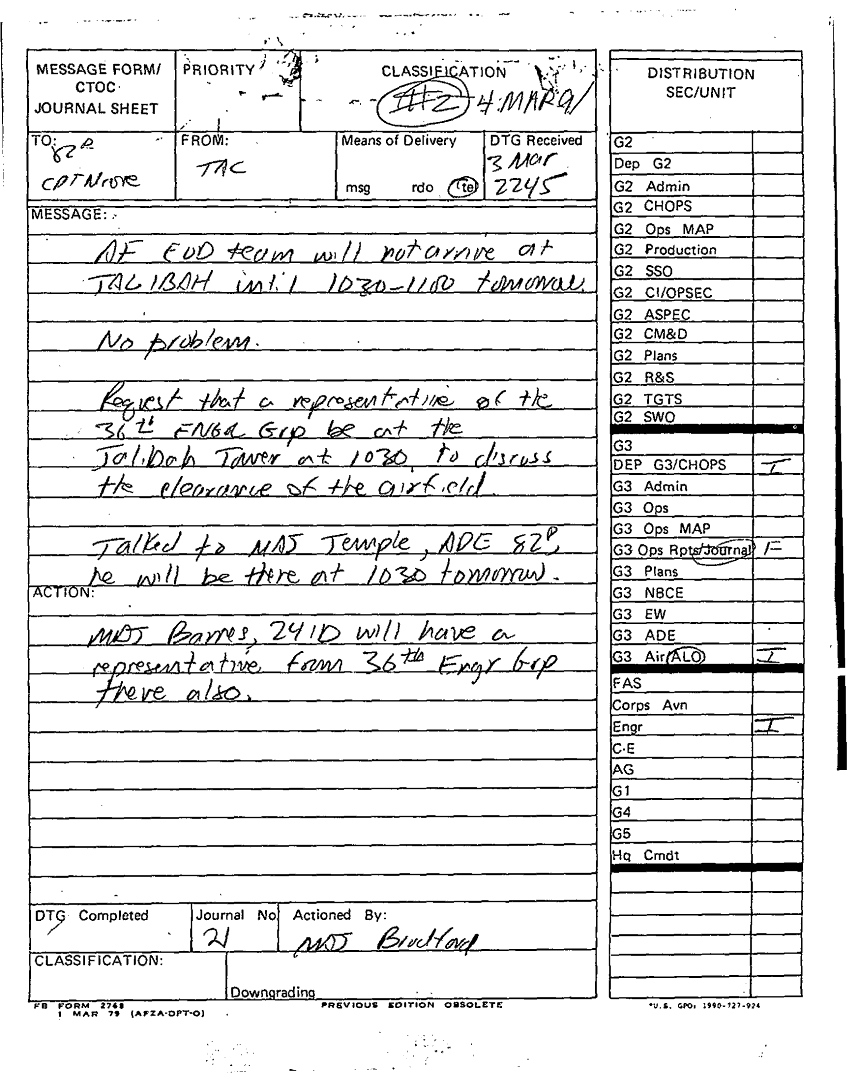 MESSAGE FORM/
CTOC
JOURNAL SHEET
PRIORITY
CLASSIFICATION
#2 4 MAR 91
TO:
82D
CPT
FROM:
TAC
Means of Delivery
msg rdo tel
DTG Received
3 Mar
2245
MESSAGE:
AF EOD team will not arrive at
TALIBAH intil 1030-1100 tomorrow.
No problem.
Request that a representative of the
36th ENGR Grp be at the
Talibah Tower at 1030, to discuss
the clearance of the airfield.
Talked to MAJ Temple, ADE 82D,
he will be there at 1030 tomorrow.
ACTION:
MAJ Barres, 24 ID will have a
representative from 36th Engr Grp
there also.
DTG Completed
Journal No
21
Actioned By:
MAJ Bradford
CLASSIFICATION:
Downgrading
FB FORM 2768
1 MAR 79 (AFZA-DPT-O)
PREVIOUS EDITION OBSOLETE
DISTRIBUTION
SEC/UNIT
G2
Dep G2
G2 Admin
G2 CHOPS
G2 Ops MAP
G2 Production
G2 SSO
G2 CI/OPSEC
G2 ASPEC
G2 CM&D
G2 Plans
G2 R&S
G2 TGTS
G2 SWO
G3
DEP G3/CHOPS I
G3 Admin
G3 Ops
G3 Ops MAP
G3 Ops Rpts/Journal F
G3 Plans
G3 NBCE
G3 EW
G3 ADE
G3 Air/ALO I
FAS
Corps Avn
Engr I
C-E
AG
G1
G4
G5
Hq Cmdt
*U.S. GPO: 1990-727-924